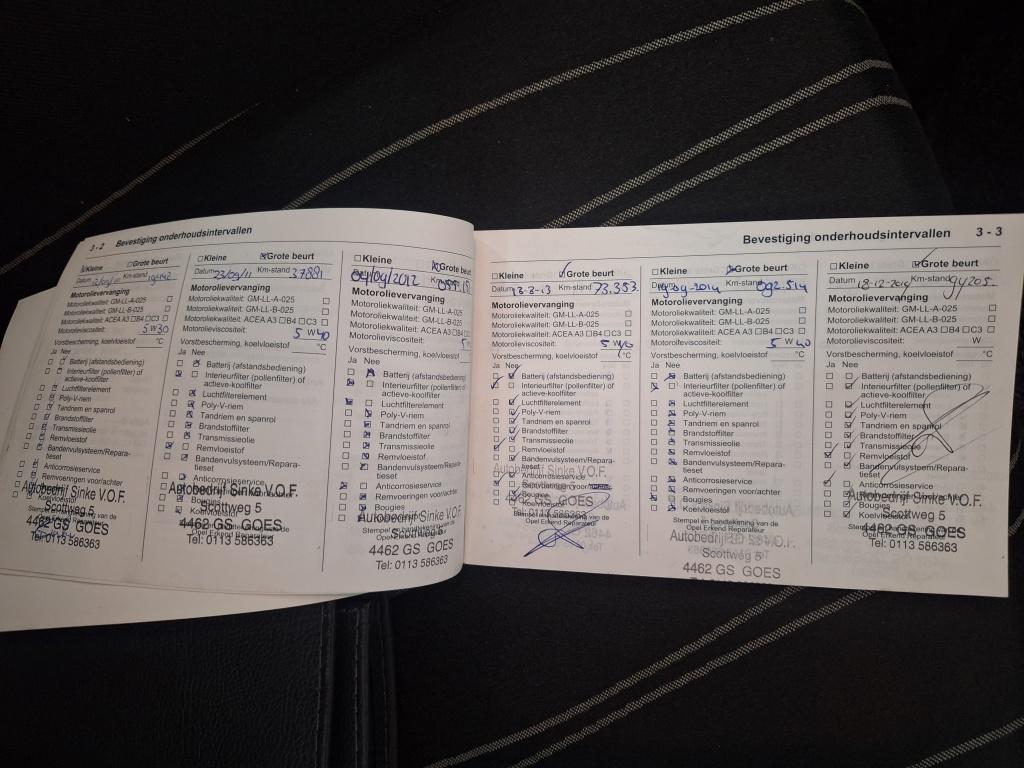 3 - 2 Bevestiging onderhoudsintervallen
☑Kleine ☐Grote beurt
Datum Km-stand
Motorolievervanging
Motoroliekwaliteit: GM-LL-A-025 ☐
Motoroliekwaliteit: GM-LL-B-025 ☐
Motoroliekwaliteit: ACEA A3 ☐B4 ☐C3 ☐
Motorolieviscositeit: 5 W30
Vorstbescherming, koelvloeistof °C
Ja Nee
Batterij (afstandsbediening)
Interieurfilter (pollenfilter) of
actieve-koolfilter
Luchtfilterelement
Poly-V-riem
Tandriem en spanrol
Brandstoffilter
Transmissieolie
Remvloeistof
Bandenvulsysteem/Repara-
tieset
Anticorrosieservice
Autobedrijf Sinke V.O.F.
Scottweg 5
4462 GS GOES
Tel: 0113 586363
☐Kleine ☒Grote beurt
Datum 23/09/11 Km-stand 37881
Motorolievervanging
Motoroliekwaliteit: GM-LL-A-025 ☐
Motoroliekwaliteit: GM-LL-B-025 ☐
Motoroliekwaliteit: ACEA A3 ☐B4 ☐C3 ☐
Motorolieviscositeit: 5 W40
Vorstbescherming, koelvloeistof °C
Ja Nee
Batterij (afstandsbediening)
Interieurfilter (pollenfilter) of
actieve-koolfilter
Luchtfilterelement
Poly-V-riem
Tandriem en spanrol
Brandstoffilter
Transmissieolie
Remvloeistof
Bandenvulsysteem/Repara-
tieset
Anticorrosieservice
Autobedrijf Sinke V.O.F.
Scottweg 5
4462 GS GOES
Tel: 0113 586363
☐Kleine ☒Grote beurt
Datum 04/09/2012 Km-stand
Motorolievervanging
Motoroliekwaliteit: GM-LL-A-025
Motoroliekwaliteit: GM-LL-B-025
Motoroliekwaliteit: ACEA A3
Motorolieviscositeit: 5
Vorstbescherming, koelvloeistof
Ja Nee
Batterij (afstandsbediening)
Interieurfilter (pollenfilter) of
actieve-koolfilter
Luchtfilterelement
Poly-V-riem
Tandriem en spanrol
Brandstoffilter
Transmissieolie
Remvloeistof
Bandenvulsysteem/Repara-
tieset
Anticorrosieservice
Remvoeringen voor/achter
Bougies
Autobedrijf Sinke V.O.F.
Scottweg 5
4462 GS GOES
Tel: 0113 586363
Bevestiging onderhoudsintervallen 3 - 3
☐Kleine ☑Grote beurt
Datum 13-2-13 Km-stand 73.353
Motorolievervanging
Motoroliekwaliteit: GM-LL-A-025 ☐
Motoroliekwaliteit: GM-LL-B-025 ☐
Motoroliekwaliteit: ACEA A3 ☐B4 ☐C3 ☐
Motorolieviscositeit: 5 W
Vorstbescherming, koelvloeistof °C
Ja Nee
Batterij (afstandsbediening)
Interieurfilter (pollenfilter) of
actieve-koolfilter
Luchtfilterelement
Poly-V-riem
Tandriem en spanrol
Brandstoffilter
Transmissieolie
Remvloeistof
Bandenvulsysteem/Repara-
tieset
Autobedrijf Sinke V.O.F.
Anticorrosieservice
Remvoeringen voor/achter
Bougies
4462 GS GOES
Tel: 0113 586363
Opel Erkend Reparateur
☐Kleine ☒Grote beurt
Datum Km-stand 092.514
Motorolievervanging
Motoroliekwaliteit: GM-LL-A-025 ☐
Motoroliekwaliteit: GM-LL-B-025 ☐
Motoroliekwaliteit: ACEA A3 ☐B4 ☐C3 ☐
Motorolieviscositeit: 5 W 40
Vorstbescherming, koelvloeistof °C
Ja Nee
Batterij (afstandsbediening)
Interieurfilter (pollenfilter) of
actieve-koolfilter
Luchtfilterelement
Poly-V-riem
Tandriem en spanrol
Brandstoffilter
Transmissieolie
Remvloeistof
Bandenvulsysteem/Repara-
tieset
Anticorrosieservice
Remvoeringen voor/achter
Bougies
Koelvloeistof
Stempel en handtekening van de
Opel Erkend Reparateur
Autobedrijf Sinke V.O.F.
Scottweg 5
4462 GS GOES
☐Kleine ☑Grote beurt
Datum 18-12-2014 Km-stand 94205.
Motorolievervanging
Motoroliekwaliteit: GM-LL-A-025 ☐
Motoroliekwaliteit: GM-LL-B-025 ☐
Motoroliekwaliteit: ACEA A3 ☐B4 ☐C3 ☐
Motorolieviscositeit: W
Vorstbescherming, koelvloeistof °C
Ja Nee
Batterij (afstandsbediening)
Interieurfilter (pollenfilter) of
actieve-koolfilter
Luchtfilterelement
Poly-V-riem
Tandriem en spanrol
Brandstoffilter
Transmissieolie
Remvloeistof
Bandenvulsysteem/Repara-
tieset
Anticorrosieservice
Autobedrijf Sinke V.O.F.
Bougies
Koelvloeistof
Scottweg 5
4462 GS GOES
Tel: 0113 586363